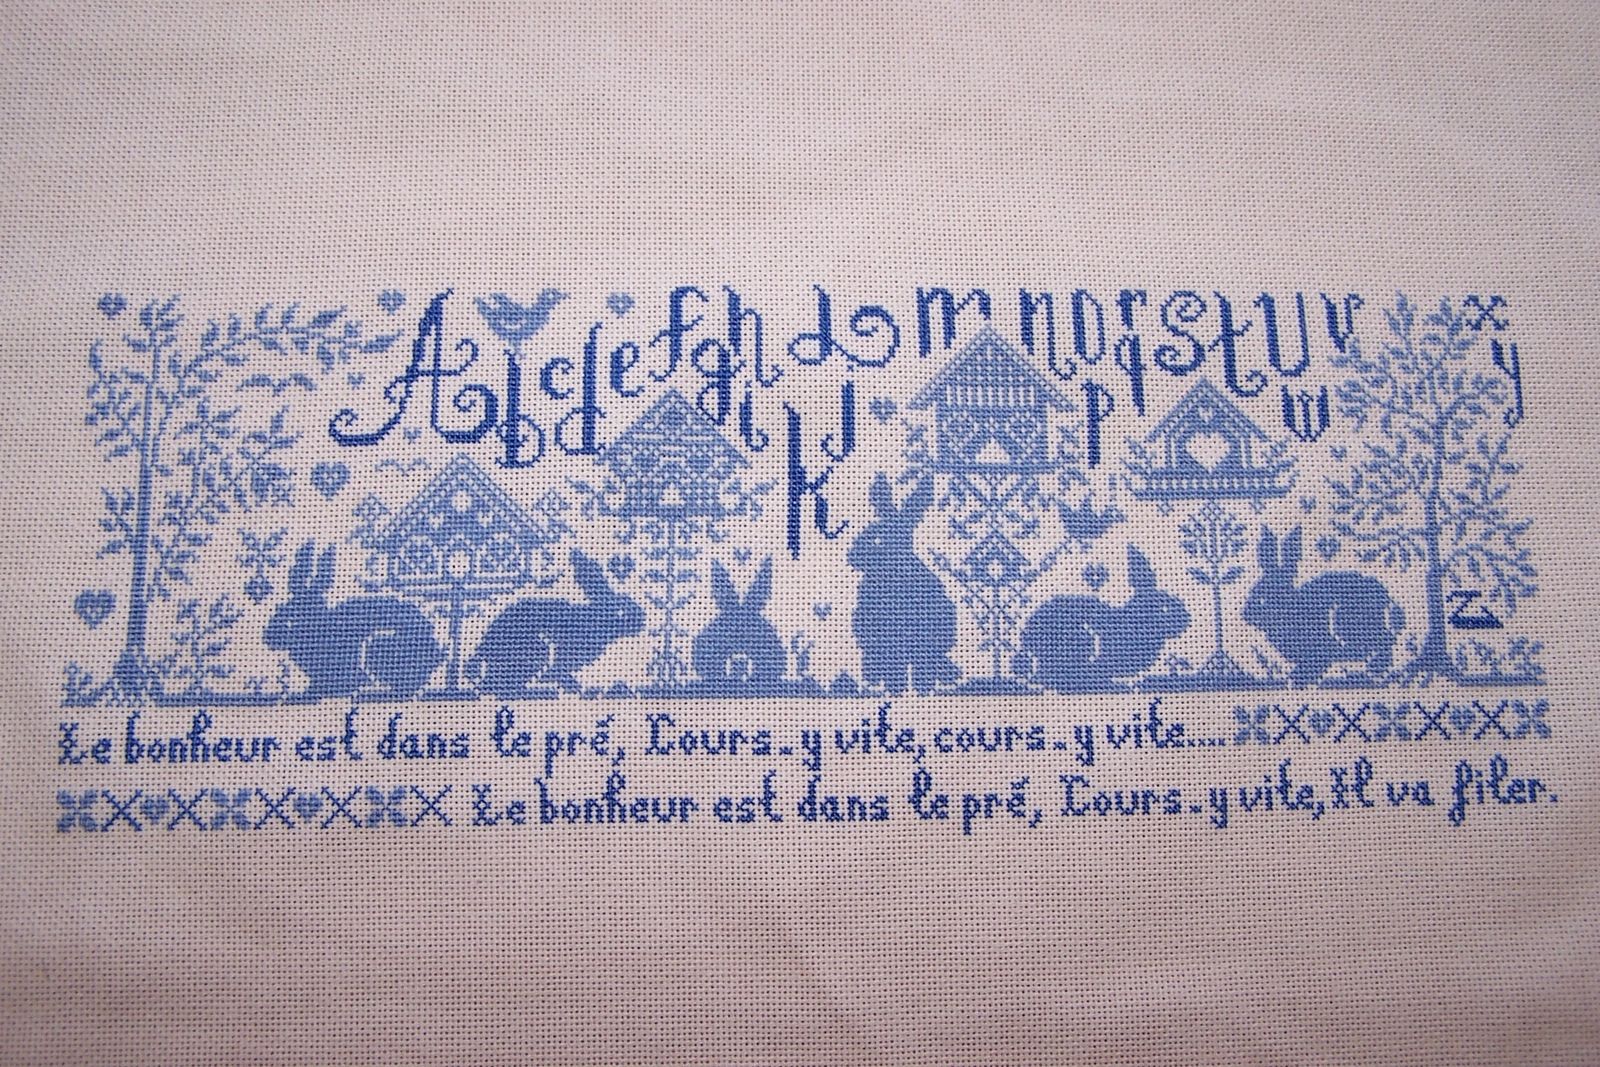 A b c d e f g h i j k L m n o p q r s t U v w x y Z
Le bonheur est dans le pré, Cours-y vite, cours-y vite....
Le bonheur est dans le pré, Cours-y vite, Il va filer.